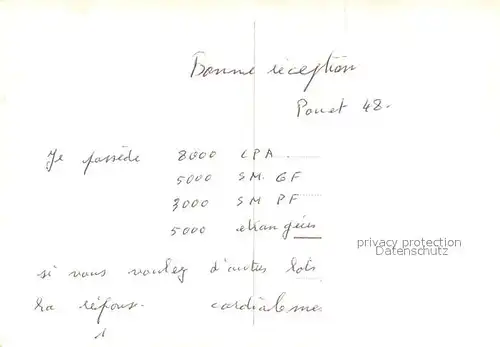 Bonne réception
Pouet 48.
Je possède 8000 CPA
5000 S.M. GF
3000 SM PF
5000 etrangères
privacy protection
Datenschutz
si vous voulez d'autres lots
la réponse. cardialeme